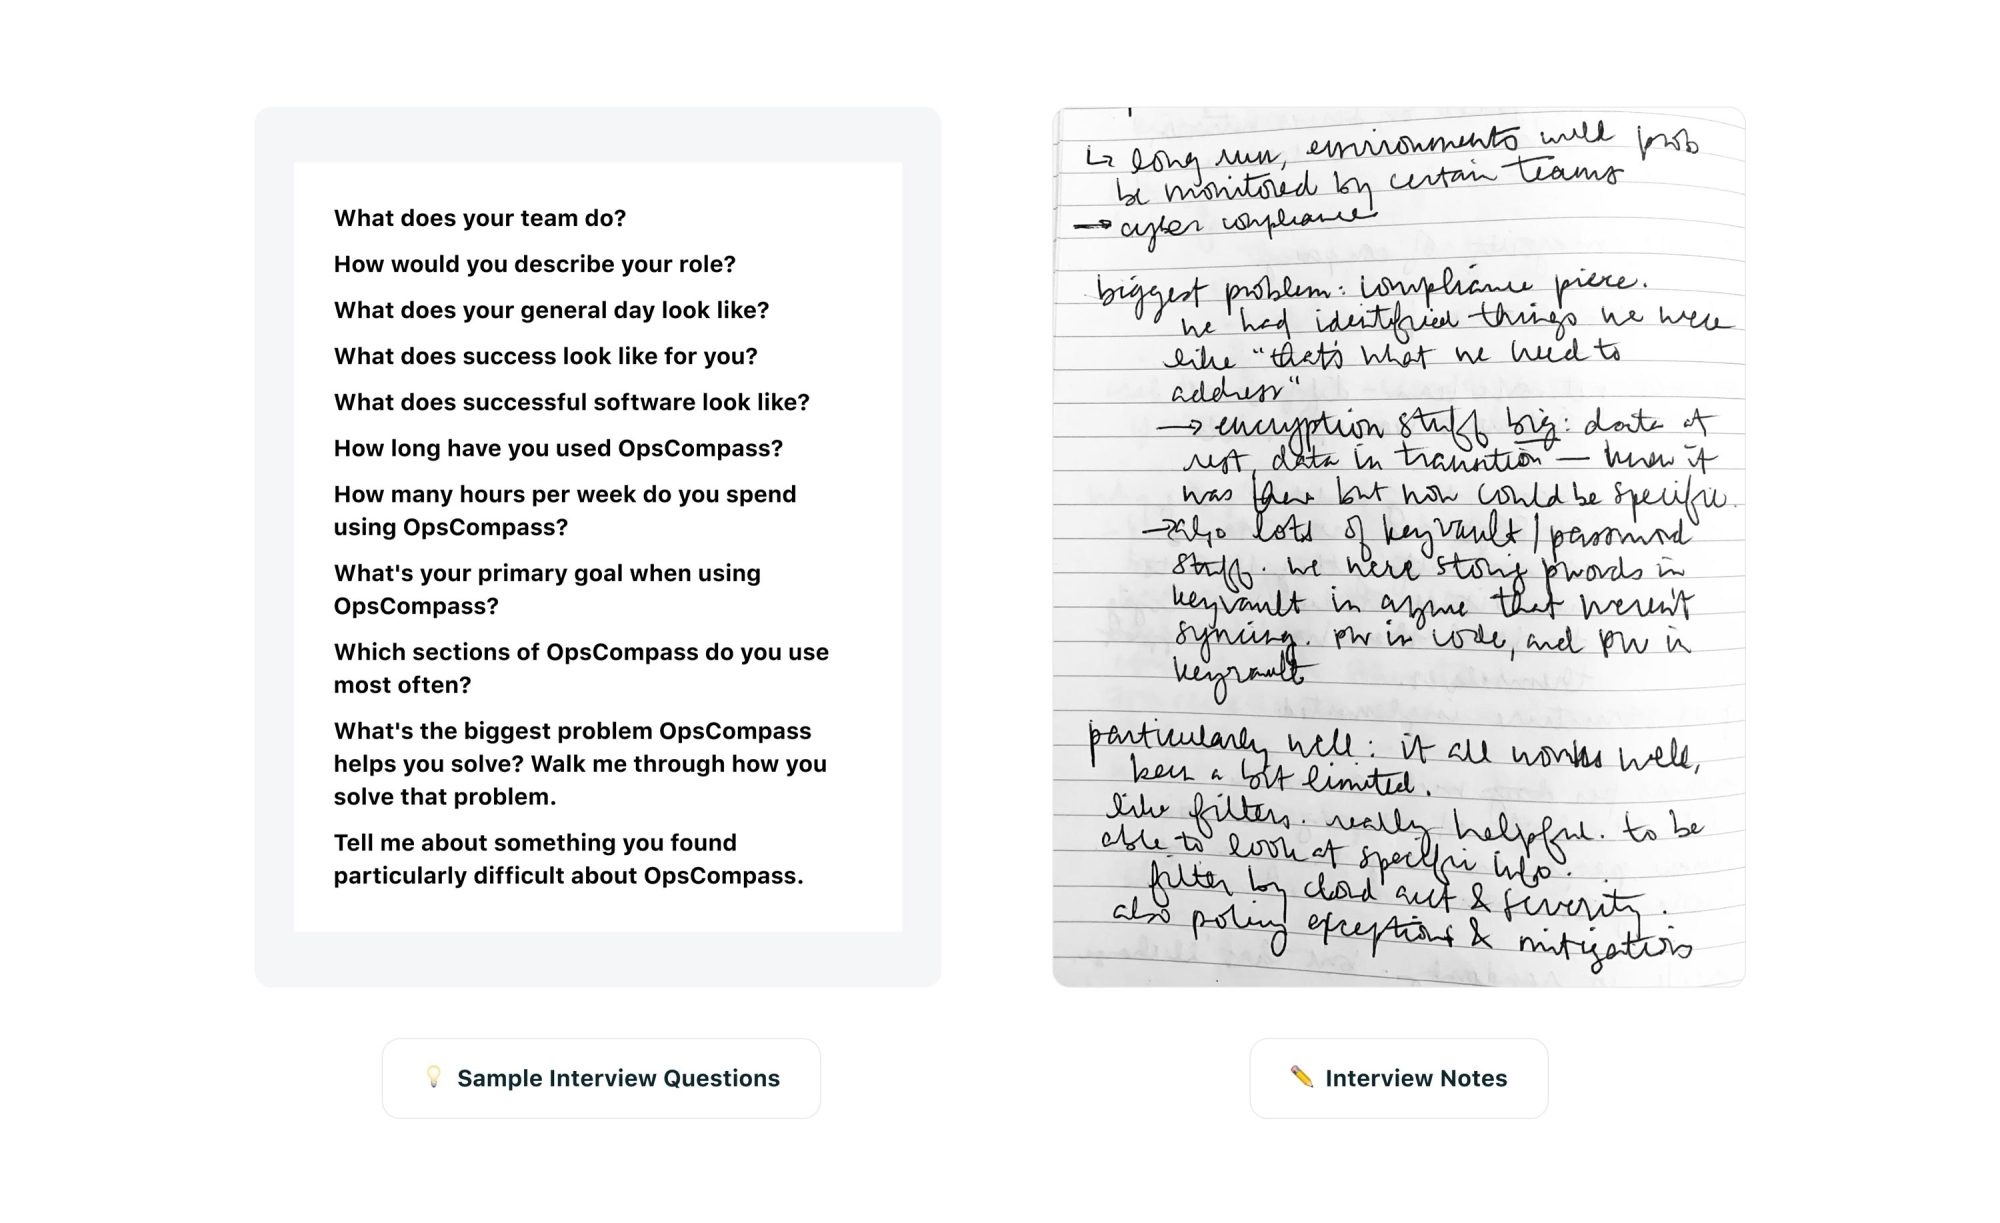 What does your team do?
How would you describe your role?
What does your general day look like?
What does success look like for you?
What does successful software look like?
How long have you used OpsCompass?
How many hours per week do you spend
using OpsCompass?
What's your primary goal when using
OpsCompass?
Which sections of OpsCompass do you use
most often?
What's the biggest problem OpsCompass
helps you solve? Walk me through how you
solve that problem.
Tell me about something you found
particularly difficult about OpsCompass.
💡 Sample Interview Questions
↳ long run, environments will prob
be monitored by certain teams
→ cyber compliance
biggest problem: compliance piece.
we had identified things we were
like "that's what we need to
address"
→ encryption stuff big: data at
rest, data in transition — knew it
was there but now could be specific.
→ also lots of keyvault/password
stuff. we were storing pwords in
keyvault in azure that weren't
syncing. pw in code, and pw in
keyvault
particularly well: it all works well,
been a bit limited.
like filters. really helpful. to be
able to look at specific info.
filter by cloud acct & severity.
also policy exceptions & mitigations
✏️ Interview Notes